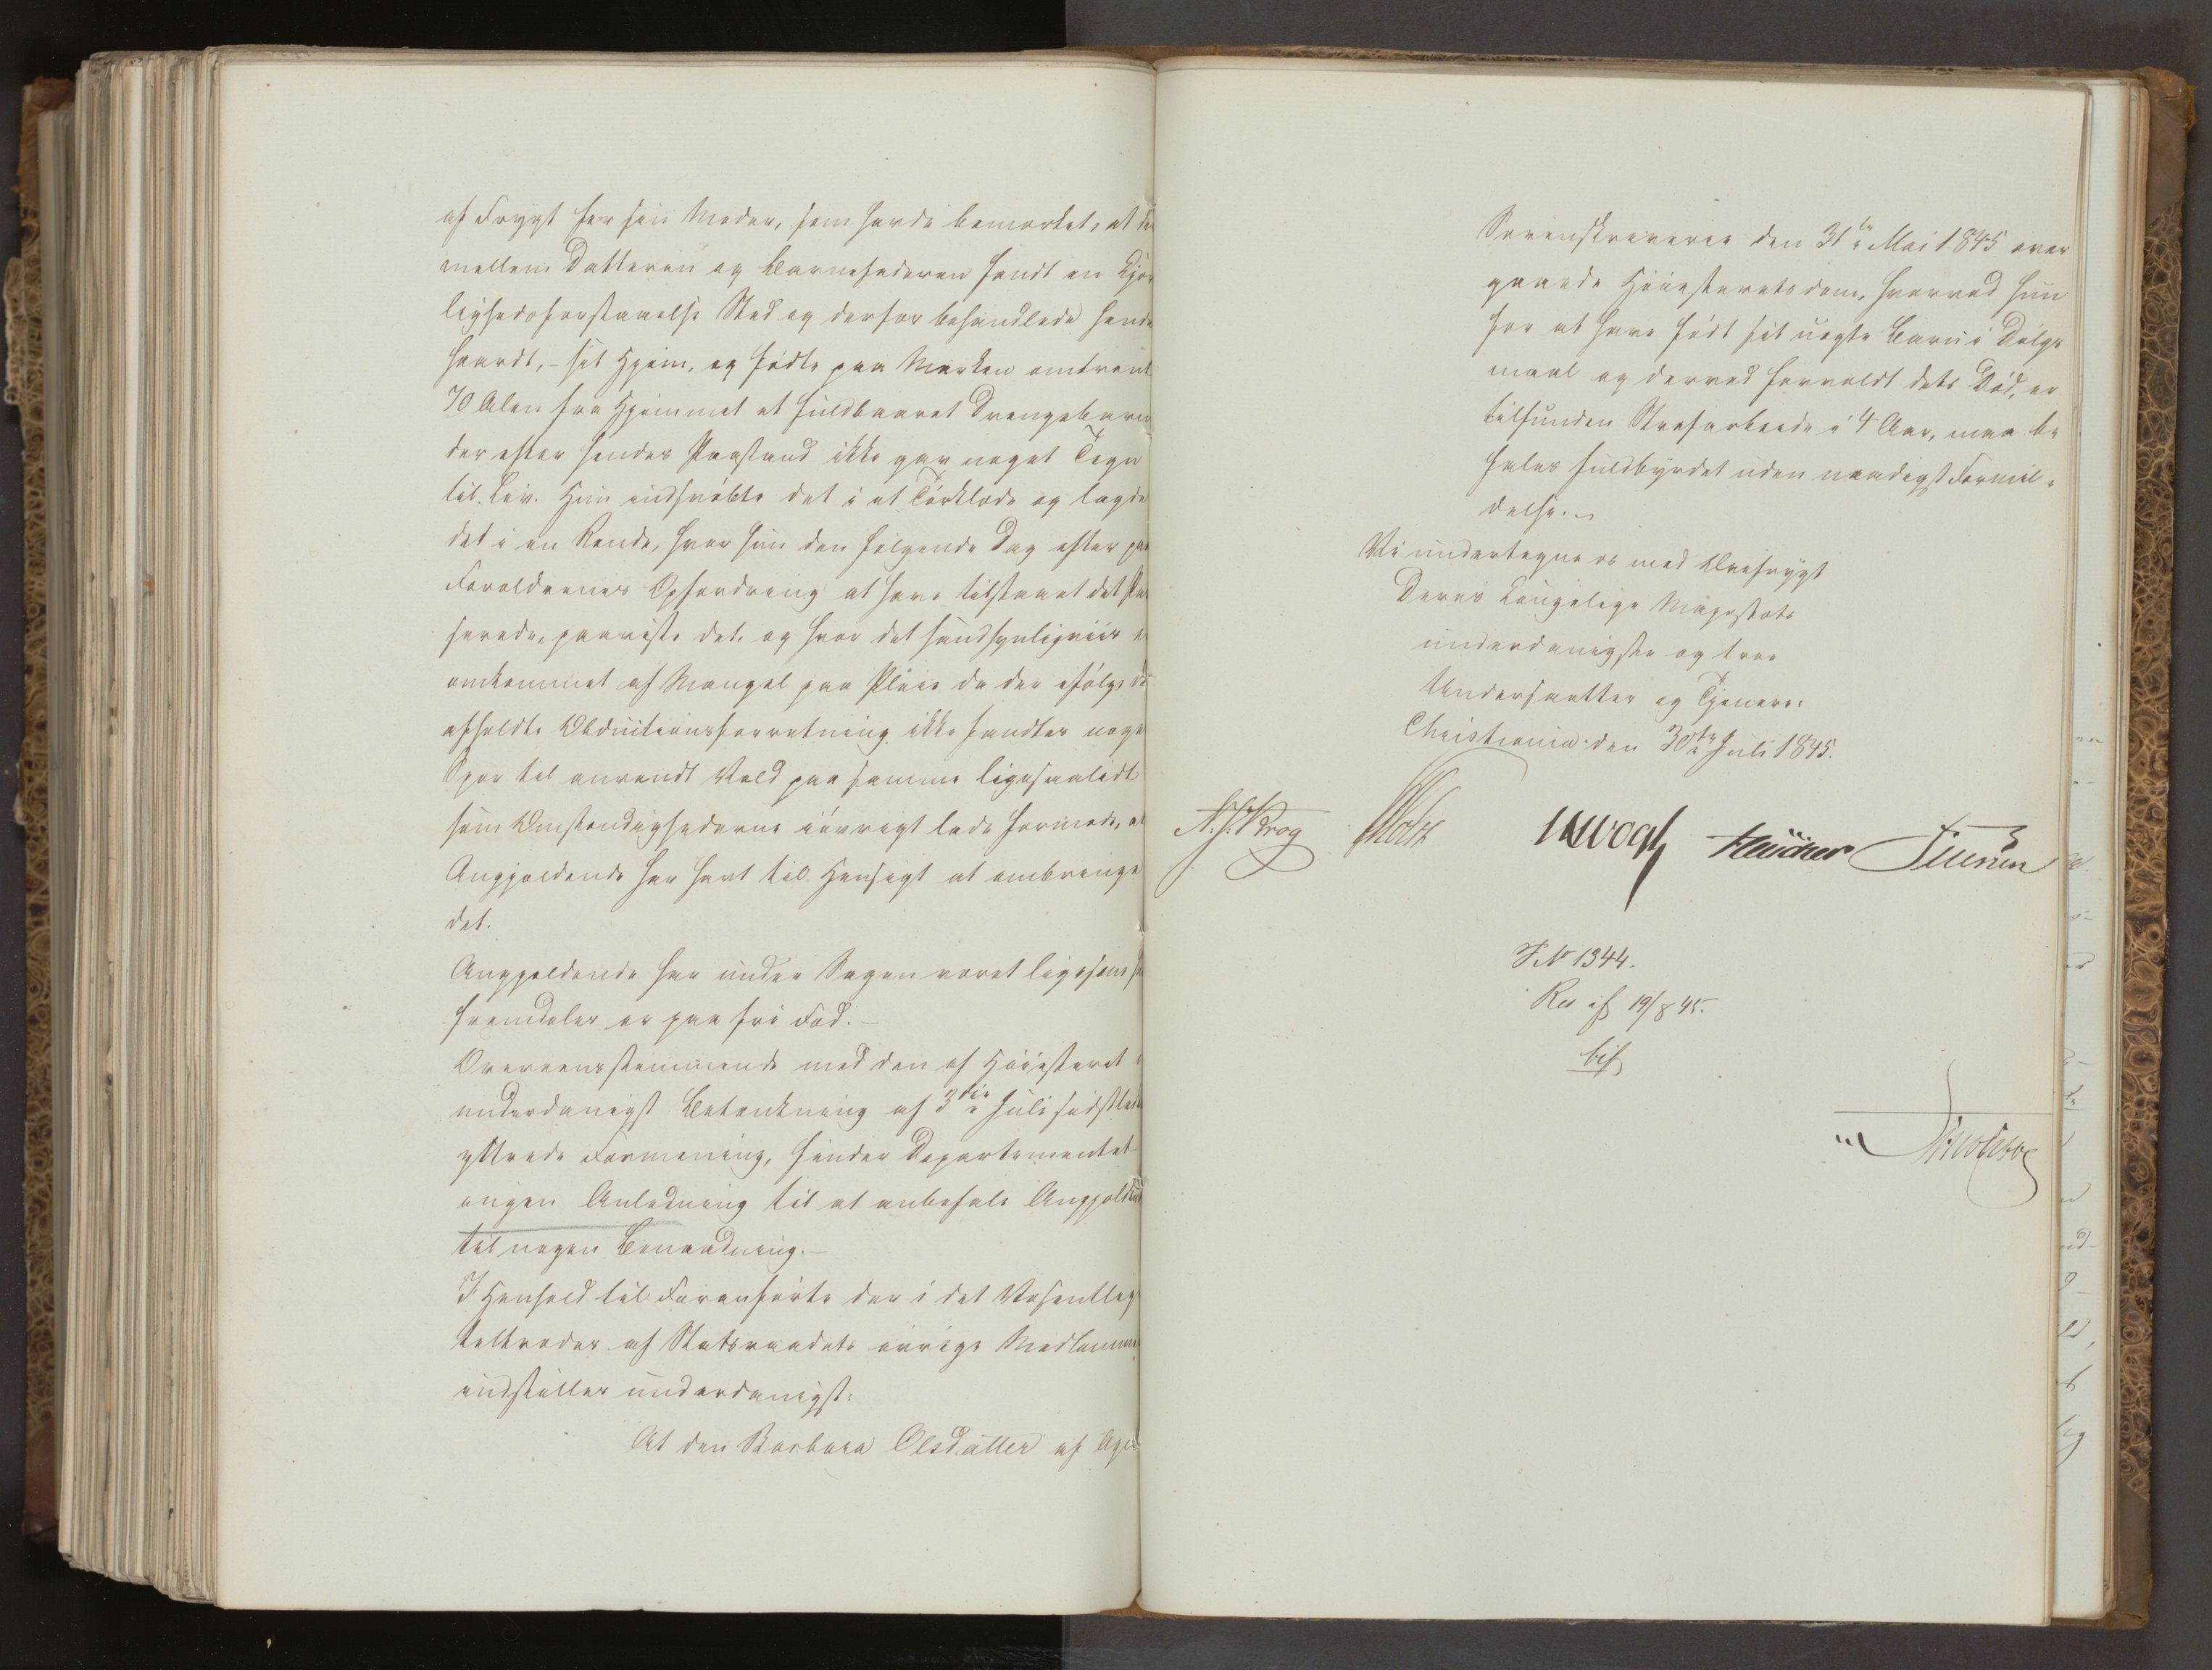 af Frygt for sin Moder, som havde bemærket, at de
mellem Datteren og Barnefaderen fandt en Kjær
lighedsforstaaelse Sted og derfor behandlede hende
haardt, - sit Hjem, og fødte paa Marken omtrent
70 Alen fra Hjemmet et fuldbaaret Drengebarn
der efter hendes Paastand ikke gav noget Tegn
til Liv. Hun indsvøbte det i et Tørklæde og lagde
det i en Rende, hvor hun den følgende Dag efter paa
Forældrenes Opfordring at have tilstaaet det Pas
serede, paaviste det, og hvor det sandsynligviis er
omkommet af Mangel paa Pleie da der ifølge de
afholdte Obductionsforretning ikke fandtes noget
Spor til anvendt Vold paa samme ligesaalidt
som Omstændighederne iøvrigt lade formode, at
Angjældende har havt til Hensigt at ombringe
det.
Angjældende har under Sagen været ligesom hu
fremdeles er paa fri Fod. -
Overeensstemmende med den af Høiesteret i
underdanigst Betænkning af 3die Juli sidstled
yttrede Formening, finder Departementet
ingen Anledning til at anbefale Angjældende
til nogen Benaadning. -
I Henhold til Foranførte der i det Væsentlig
tiltrædes af Statsraadets øvrige Medlemmer
indstilles underdanigst:
At den Barbara Olsdatter af Age
Sorenskriverie den 31te Mai 1845 over
gaaede Høiesteretsdom, hvorved hun
for at have født sit uægte Barn i Dølgs
maal og derved forvoldt dets Død, er
tilfunden Strafarbeide i 4 Aar, maa be
fales fuldbyrdet uden naadigst Formil-
delse. -
Vi undertegne os med Ærefrygt
Deres Kongelige Majestæts
underdanigste og troe
Undersaatter og Tjenere.
Christiania den 30te Juli 1845.
N. J. Krog Holst Vogt Fleischer Petersen
J. No 1344.
Res if 19/8 45.
bif